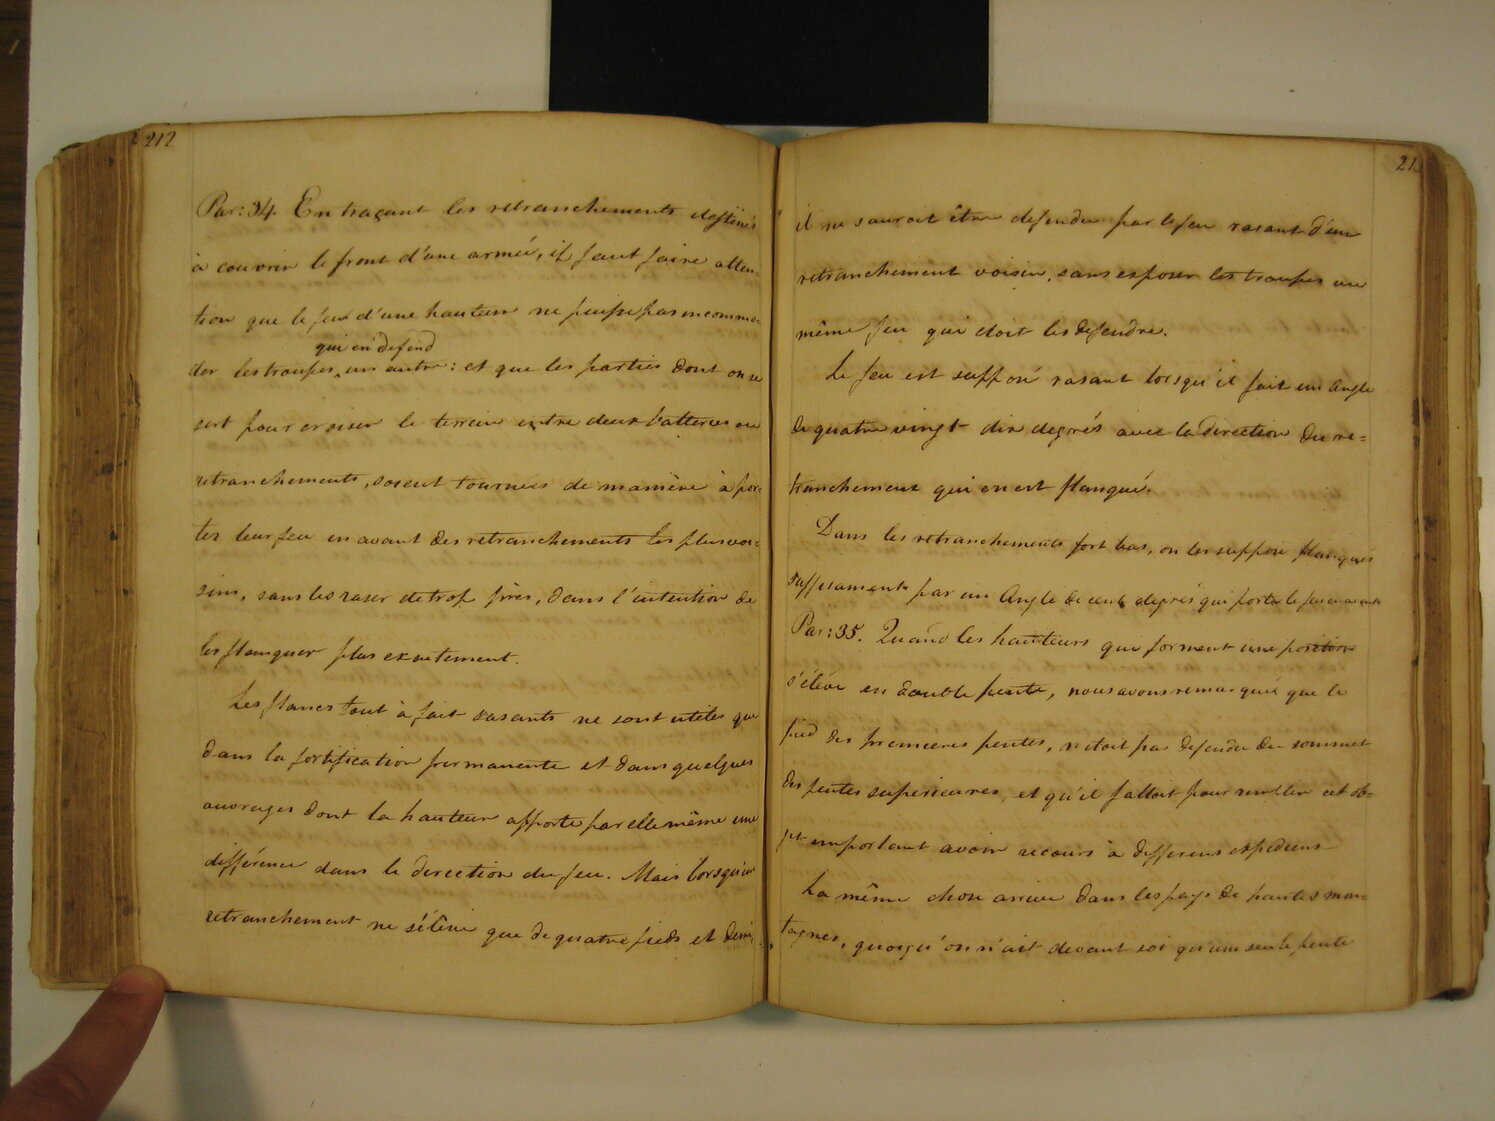 212
Par: 34. En traçant les retranchements destinés
à couvrir le front d'une armée, il faut faire atten=
tion que le feu d'une hauteur ne puisse pas incommo-
qui en defend
der les troupes, un autre: et que les parties dont on se
sert pour croiser le terrein entre deux batteries ou
retranchements, soient tournées de manière à por=
ter leur feu en avant des retranchements les plus voi=
sins, sans les raser de trop près, dans l'intention de
les flanquer plus exactement.
Les flancs tout à fait rasants ne sont utiles que
dans la fortification permanente et dans quelques
ouvrages dont la hauteur apporte par elle même une
différence dans la direction du feu. Mais lorsqu'un
retranchement ne s'élève que de quatre pieds et demi,
21
il ne sauroit être defendu par le feu rasant d'un
retranchement voisin, sans exposer les troupes au
même feu qui doit les defendre.
Le feu est supposé rasant lorsqu'il fait un Angle
de quatre vingt dix degrés avec la direction du re=
tranchement qui en est flanqué.
Dans les retranchements fort bas, on les suppose flanqués
suffisamment par un Angle de cent degrés qui porte le feu en avant
Par: 35. Quand les hauteurs qui forment une position
s'élève en double pente, nous avons remarqué que le
pied des premieres pentes, n'etoit pas defendu du sommet
des pentes superieures, et qu'il falloit pour remplir cet ob=
jet important avoir recours à differens expediens
La même chose arrive dans les pays de hautes mon=
tagnes, quoiqu'on n'ait devant soi qu'une seule pente